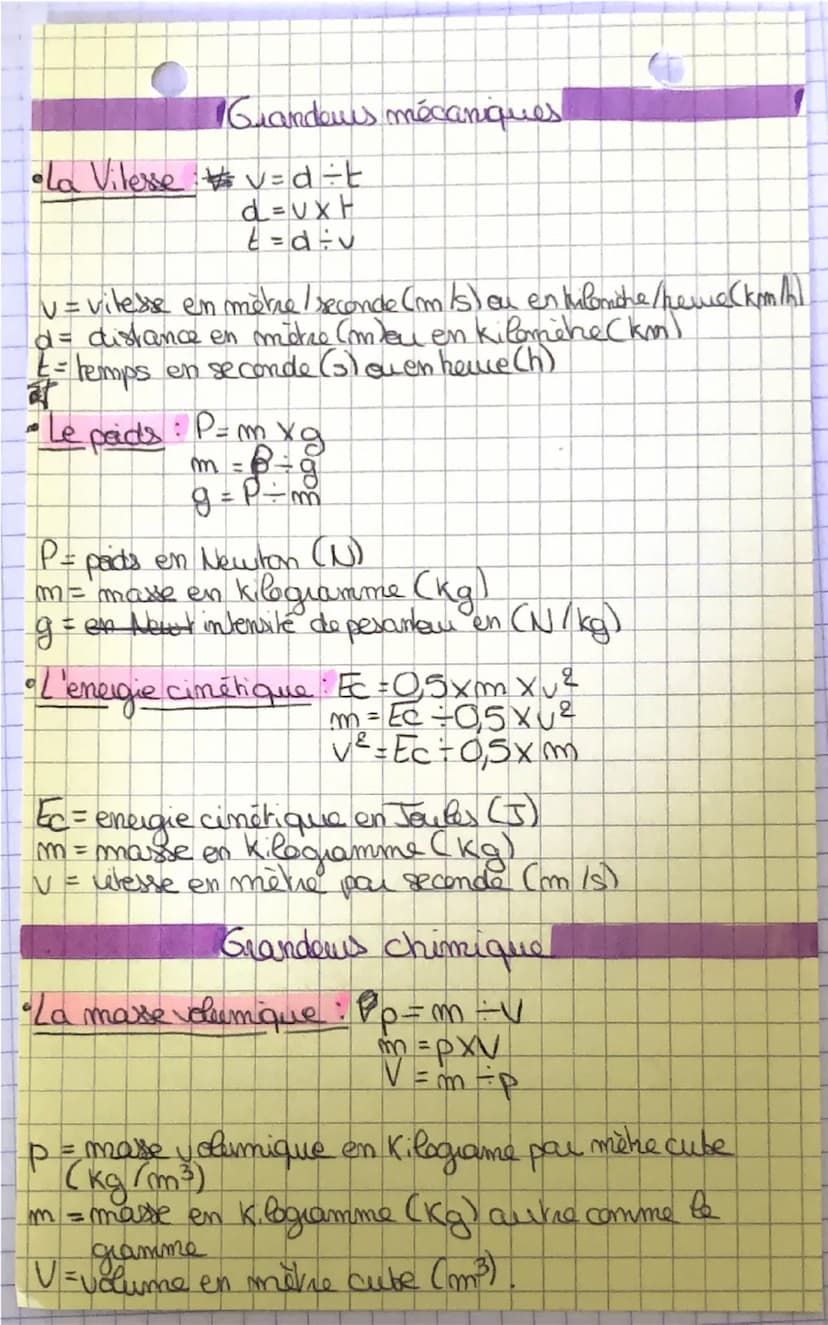 Grandeurs mécaniques
• La Vitesse : v = d ÷ t
d = v x t
t = d ÷ v
v = vitesse en mètre / seconde (m/s) ou en kilomètre / heure (km/h)
d = distance en mètre (m) ou en kilomètre (km)
t = temps en seconde (s) ou en heure (h)
• Le poids : P = m x g
m = P ÷ g
g = P ÷ m
P = poids en Newton (N)
m = masse en kilogramme (kg)
g = en Newt intensité de pesanteur en (N/kg)
• L'energie cinétique : Ec = 0,5 x m x v²
m = Ec ÷ 0,5 x v²
v² = Ec ÷ 0,5 x m
Ec = energie cinétique en Joules (J)
m = masse en kilogramme (kg)
v = vitesse en mètre par seconde (m/s)
Grandeurs chimique
• La masse volumique : p = m ÷ V
m = p x V
V = m ÷ p
p = masse volumique en kilograme par mètre cube
(kg/m³)
m = masse en kilogramme (kg) autre comme le
gramme
V = volume en mètre cube (m³).